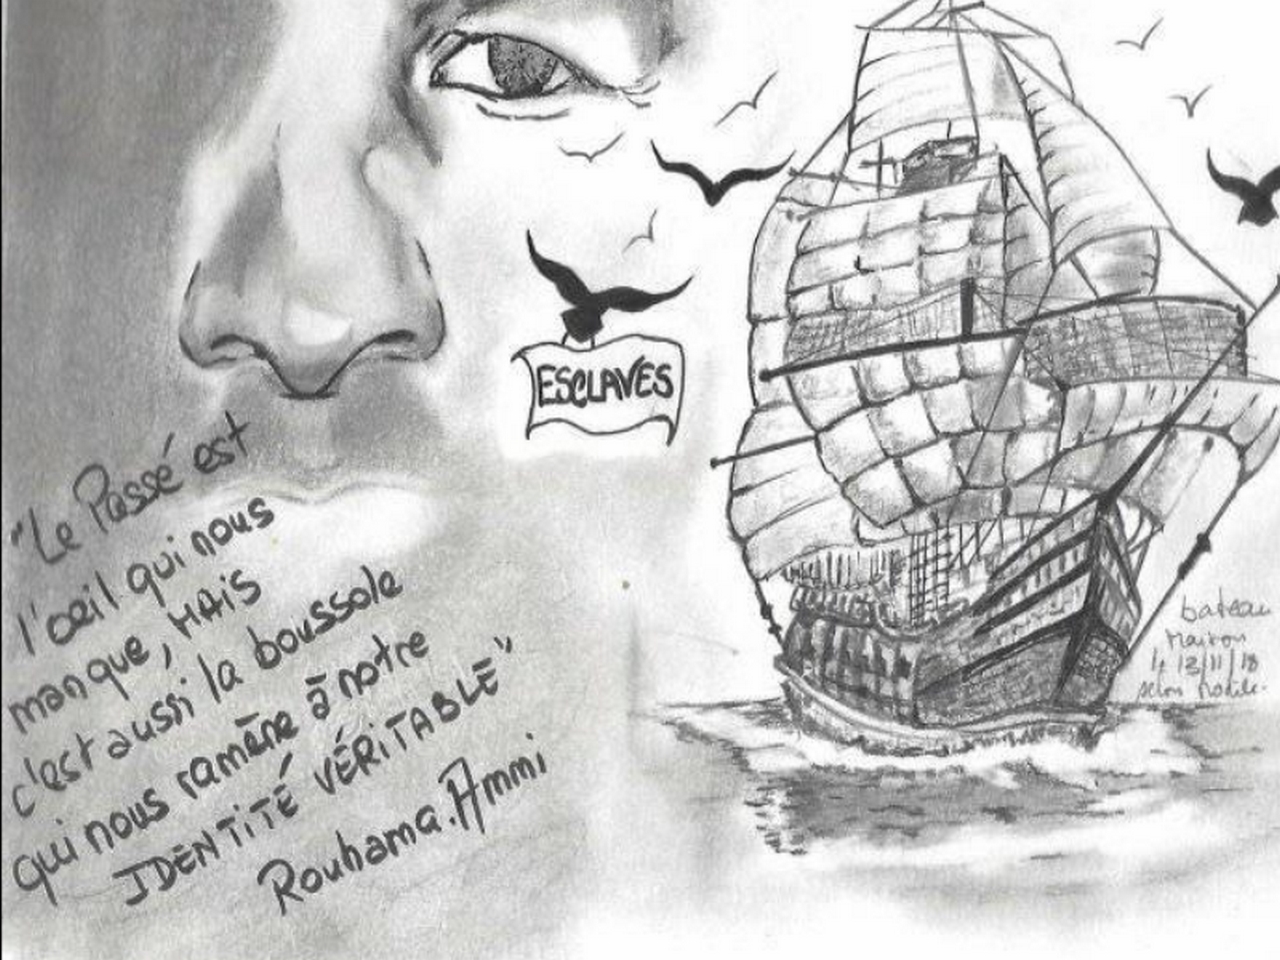 "Le Passé est
l'œil qui nous
manque, MAiS
c'est aussi la boussole
qui nous ramēne ā notre
IDENTiTÉ VÉRiTABLE"
Rouhama.Ammi
ESCLAVES
bateau
le 13/11/18
selon